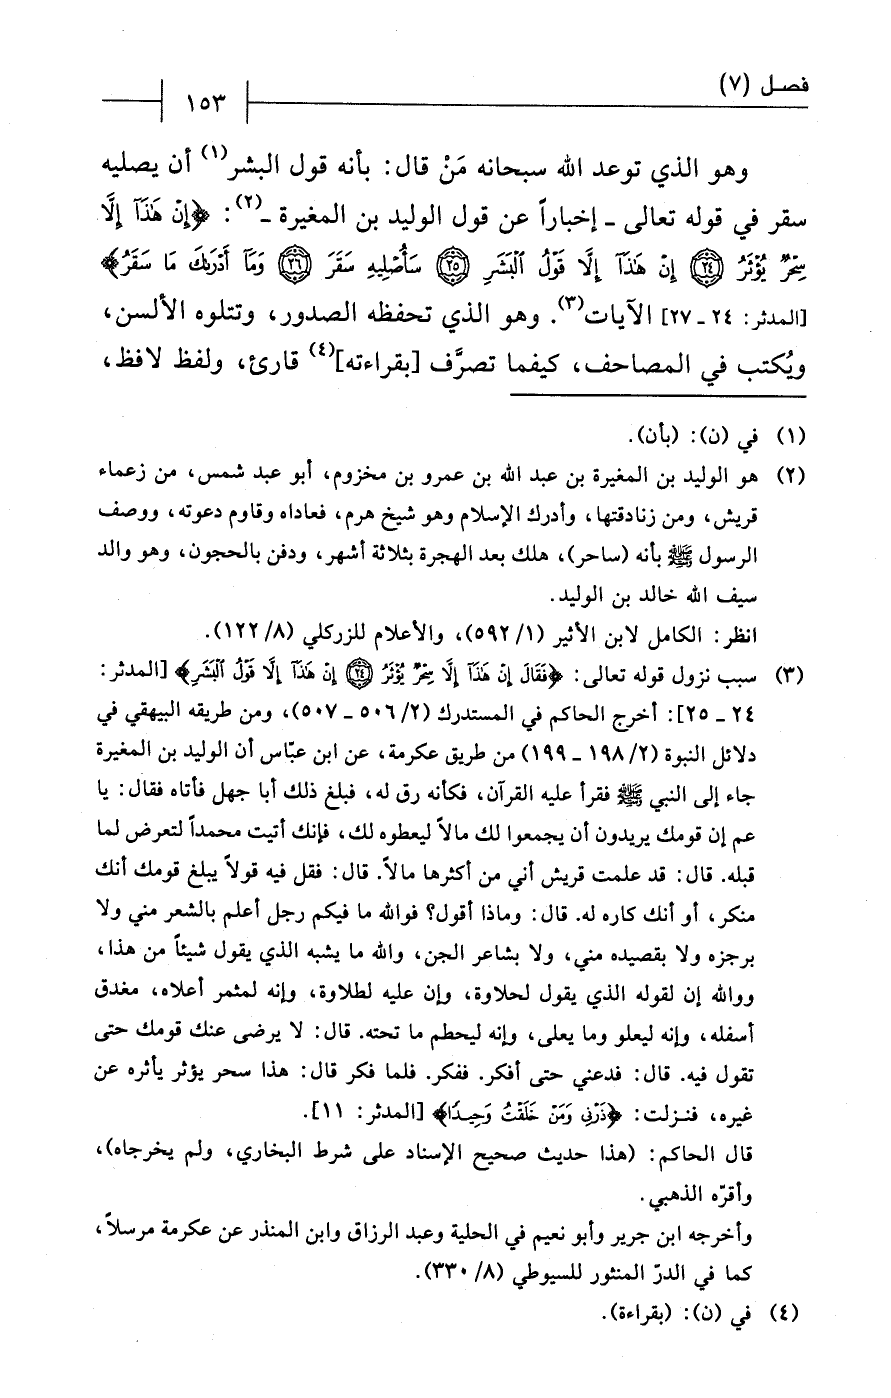 فصل (٧)
١٥٣
وهو الذي توعد الله سبحانه مَنْ قال: بأنه قول البشر(١) أن يصليه
سقر في قوله تعالى - إخباراً عن قول الوليد بن المغيرة -(٢): ﴿إِنْ هَٰذَآ إِلَّا
سِحْرٌ يُؤْثَرُ ﴿٢٤﴾ إِنْ هَٰذَآ إِلَّا قَوْلُ ٱلْبَشَرِ ﴿٢٥﴾ سَأُصْلِيهِ سَقَرَ ﴿٢٦﴾ وَمَآ أَدْرَىٰكَ مَا سَقَرُ﴾
[المدثر: ٢٤ - ٢٧] الآيات(٣). وهو الذي تحفظه الصدور، وتتلوه الألسن،
ويُكتب في المصاحف، كيفما تصرَّف [بقراءته](٤) قارئ، ولفظ لافظ،
(١) في (ن): (بأن).
(٢) هو الوليد بن المغيرة بن عبد الله بن عمرو بن مخزوم، أبو عبد شمس، من زعماء
قريش، ومن زنادقتها، وأدرك الإسلام وهو شيخ هرم، فعاداه وقاوم دعوته، ووصف
الرسول ﷺ بأنه (ساحر)، هلك بعد الهجرة بثلاثة أشهر، ودفن بالحجون، وهو والد
سيف الله خالد بن الوليد.
انظر: الكامل لابن الأثير (١/ ٥٩٢)، والأعلام للزركلي (٨/ ١٢٢).
(٣) سبب نزول قوله تعالى: ﴿فَقَالَ إِنْ هَٰذَآ إِلَّا سِحْرٌ يُؤْثَرُ ﴿٢٤﴾ إِنْ هَٰذَآ إِلَّا قَوْلُ ٱلْبَشَرِ﴾ [المدثر:
٢٤ - ٢٥]: أخرج الحاكم في المستدرك (٢/ ٥٠٦ - ٥٠٧)، ومن طريقه البيهقي في
دلائل النبوة (٢/ ١٩٨ - ١٩٩) من طريق عكرمة، عن ابن عبّاس أن الوليد بن المغيرة
جاء إلى النبي ﷺ فقرأ عليه القرآن، فكأنه رق له، فبلغ ذلك أبا جهل فأتاه فقال: يا
عم إن قومك يريدون أن يجمعوا لك مالاً ليعطوه لك، فإنك أتيت محمداً لتعرض لما
قبله. قال: قد علمت قريش أني من أكثرها مالاً. قال: فقل فيه قولاً يبلغ قومك أنك
منكر، أو أنك كاره له. قال: وماذا أقول؟ فوالله ما فيكم رجل أعلم بالشعر مني ولا
برجزه ولا بقصيده مني، ولا بشاعر الجن، والله ما يشبه الذي يقول شيئاً من هذا،
ووالله إن لقوله الذي يقول لحلاوة، وإن عليه لطلاوة، وإنه لمثمر أعلاه، مغدق
أسفله، وإنه ليعلو وما يعلى، وإنه ليحطم ما تحته. قال: لا يرضى عنك قومك حتى
تقول فيه. قال: فدعني حتى أفكر. ففكر. فلما فكر قال: هذا سحر يؤثر يأثره عن
غيره، فنزلت: ﴿ذَرْنِى وَمَنْ خَلَقْتُ وَحِيدًا﴾ [المدثر: ١١].
قال الحاكم: (هذا حديث صحيح الإسناد على شرط البخاري، ولم يخرجاه)،
وأقرّه الذهبي.
وأخرجه ابن جرير وأبو نعيم في الحلية وعبد الرزاق وابن المنذر عن عكرمة مرسلاً،
كما في الدرّ المنثور للسيوطي (٨/ ٣٣٠).
(٤) في (ن): (بقراءة).